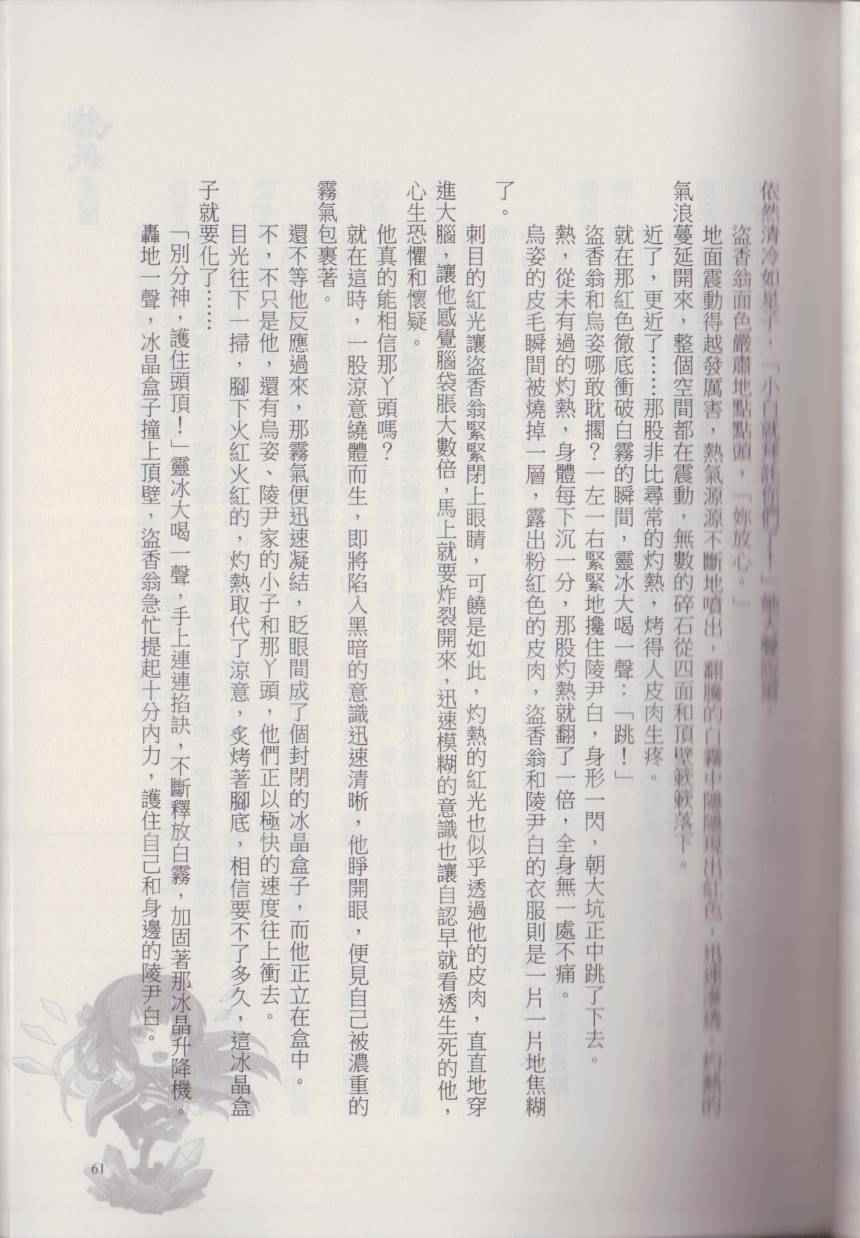 依然清冷如星子，「小白就拜託你們了！」她大聲
盜香翁面色嚴肅地點點頭，「妳放心。」
地面震動得越發厲害，熱氣源源不斷地噴出，翻騰的白霧中隱隱現出紅色，
氣浪蔓延開來，整個空間都在震動，無數的碎石從四面和頂壁簌簌落下。
近了，更近了……那股非比尋常的灼熱，烤得人皮肉生疼。
就在那紅色徹底衝破白霧的瞬間，靈冰大喝一聲：「跳！」
盜香翁和烏姿哪敢耽擱？一左一右緊緊地攙住陵尹白，身形一閃，朝大坑正中跳了下去。
熱，從未有過的灼熱，身體每下沉一分，那股灼熱就翻了一倍，全身無一處不痛。
烏姿的皮毛瞬間被燒掉一層，露出粉紅色的皮肉，盜香翁和陵尹白的衣服則是一片一片地焦糊
了。
刺目的紅光讓盜香翁緊緊閉上眼睛，可饒是如此，灼熱的紅光也似乎透過他的皮肉，直直地穿
進大腦，讓他感覺腦袋脹大數倍，馬上就要炸裂開來，迅速模糊的意識也讓自認早就看透生死的他，
心生恐懼和懷疑。
他真的能相信那丫頭嗎？
就在這時，一股涼意繞體而生，即將陷入黑暗的意識迅速清晰，他睜開眼，便見自己被濃重的
霧氣包裹著。
還不等他反應過來，那霧氣便迅速凝結，眨眼間成了個封閉的冰晶盒子，而他正立在盒中。
不，不只是他，還有烏姿、陵尹家的小子和那丫頭，他們正以極快的速度往上衝去。
目光往下一掃，腳下火紅火紅的，灼熱取代了涼意，炙烤著腳底，相信要不了多久，這冰晶盒
子就要化了……
「別分神，護住頭頂！」靈冰大喝一聲，手上連連掐訣，不斷釋放白霧，加固著那冰晶升降機。
轟地一聲，冰晶盒子撞上頂壁，盜香翁急忙提起十分內力，護住自己和身邊的陵尹白。
61